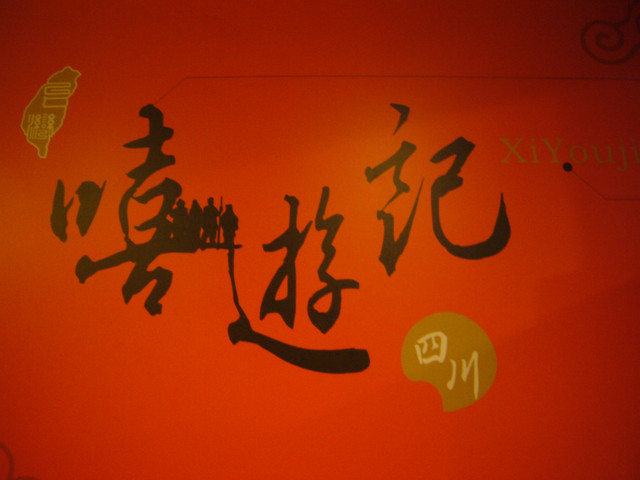 台灣
嘻遊記
XiYouji
四川